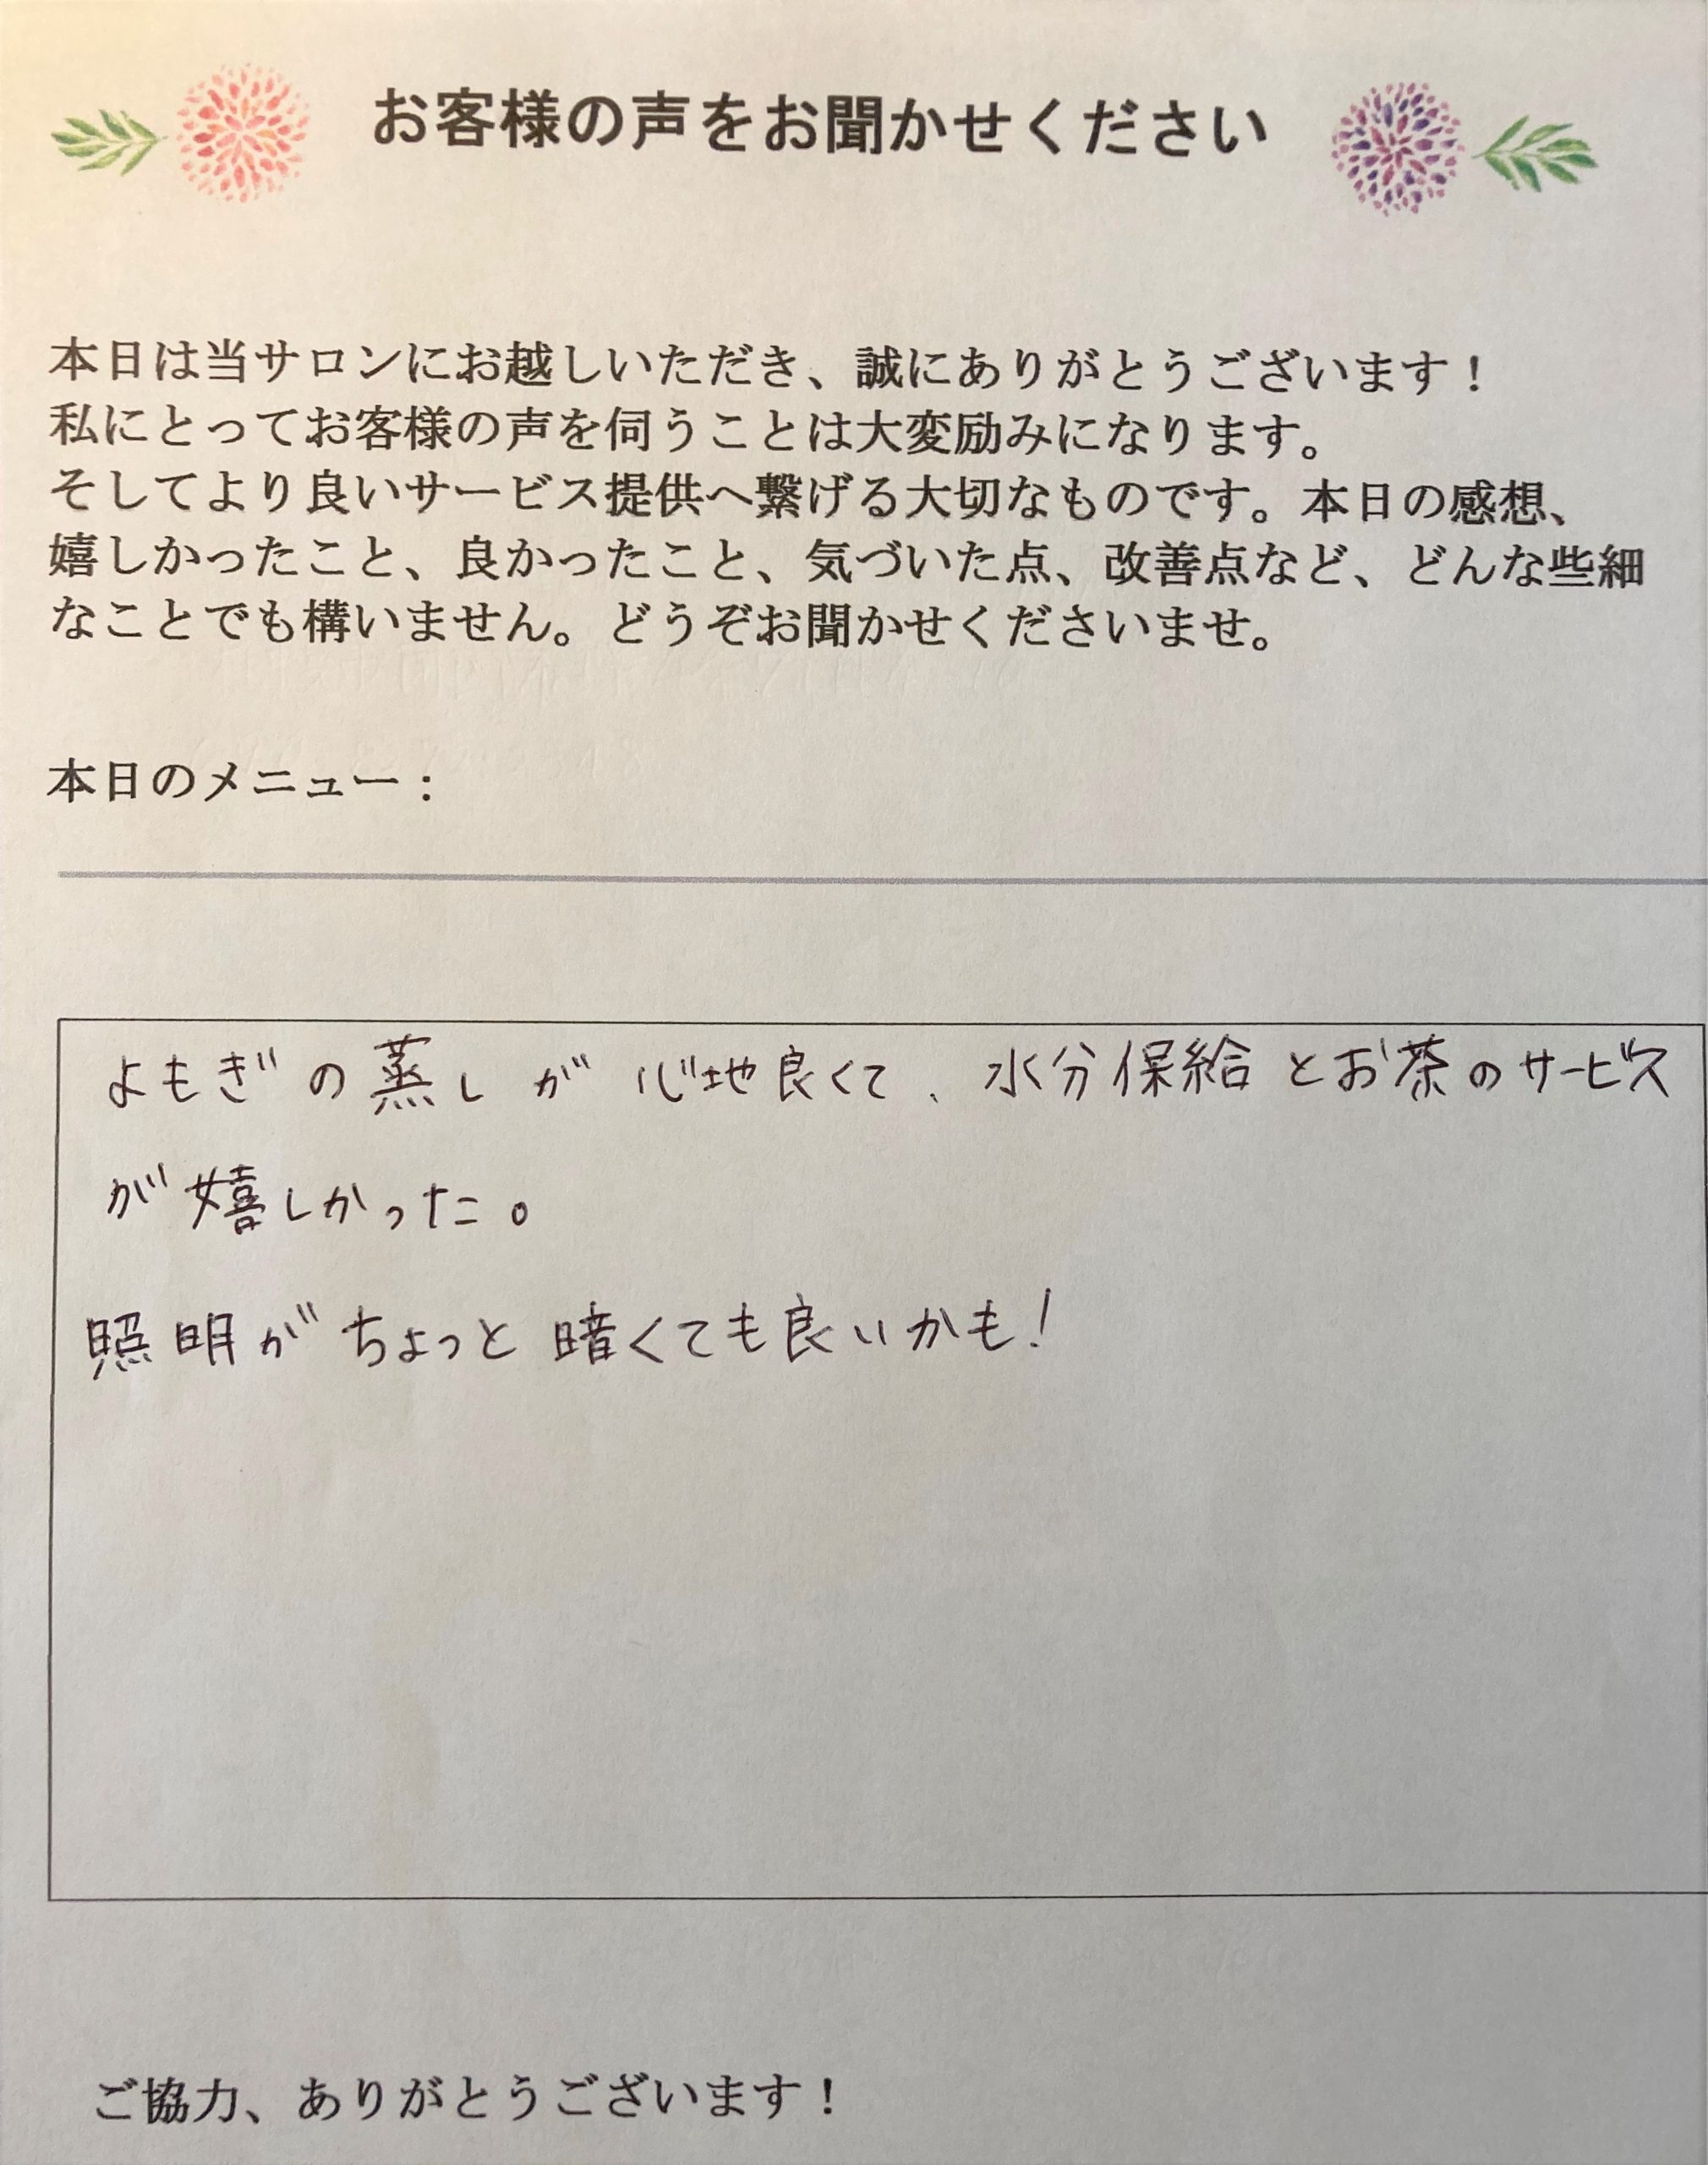 お客様の声をお聞かせください
本日は当サロンにお越しいただき、誠にありがとうございます！
私にとってお客様の声を伺うことは大変励みになります。
そしてより良いサービス提供へ繋げる大切なものです。本日の感想、
嬉しかったこと、良かったこと、気づいた点、改善点など、どんな些細
なことでも構いません。どうぞお聞かせくださいませ。
本日のメニュー：
よもぎの蒸しが心地良くて、水分保給とお茶のサービス
が嬉しかった。
照明がちょっと暗くても良いかも！
ご協力、ありがとうございます！